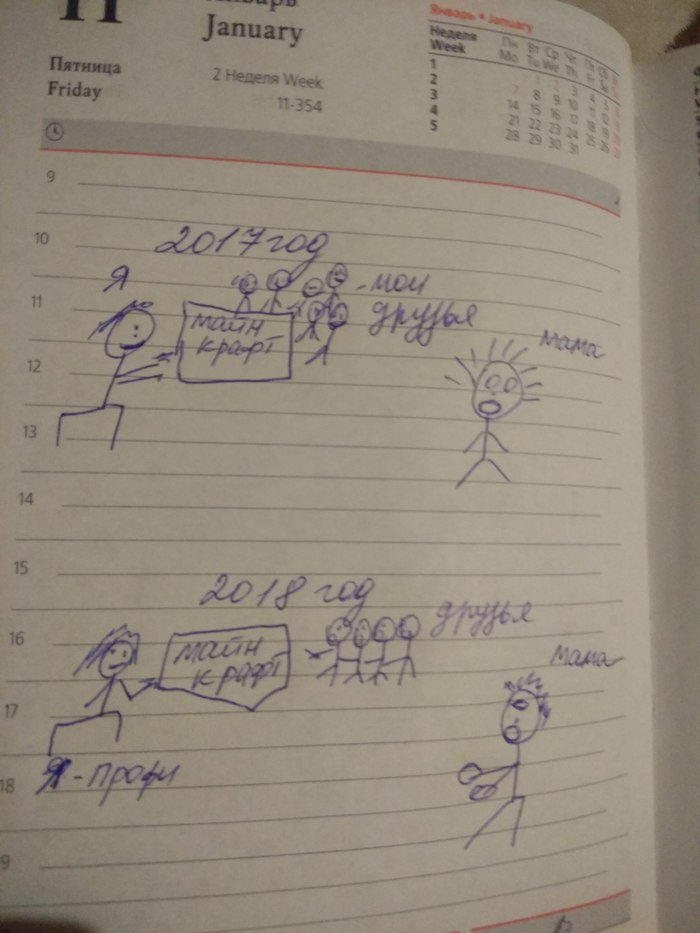 11
Январь
January
Пятница
Friday
2 Неделя Week
11-354
Январь • January
Неделя
Week
Пн Вт Ср Чт Пт Сб
Mo Tu We Th Fr Sa
1 1 2 3 4 5
2 7 8 9 10 11 12
3 14 15 16 17 18 19
4 21 22 23 24 25 26
5 28 29 30 31
9
10
2017 год
Я
- мои
11
майн
друзья
крафт
мама
12
13
14
15
2018 год
16
друзья
майн
крафт
мама
17
Я - профи
18
9